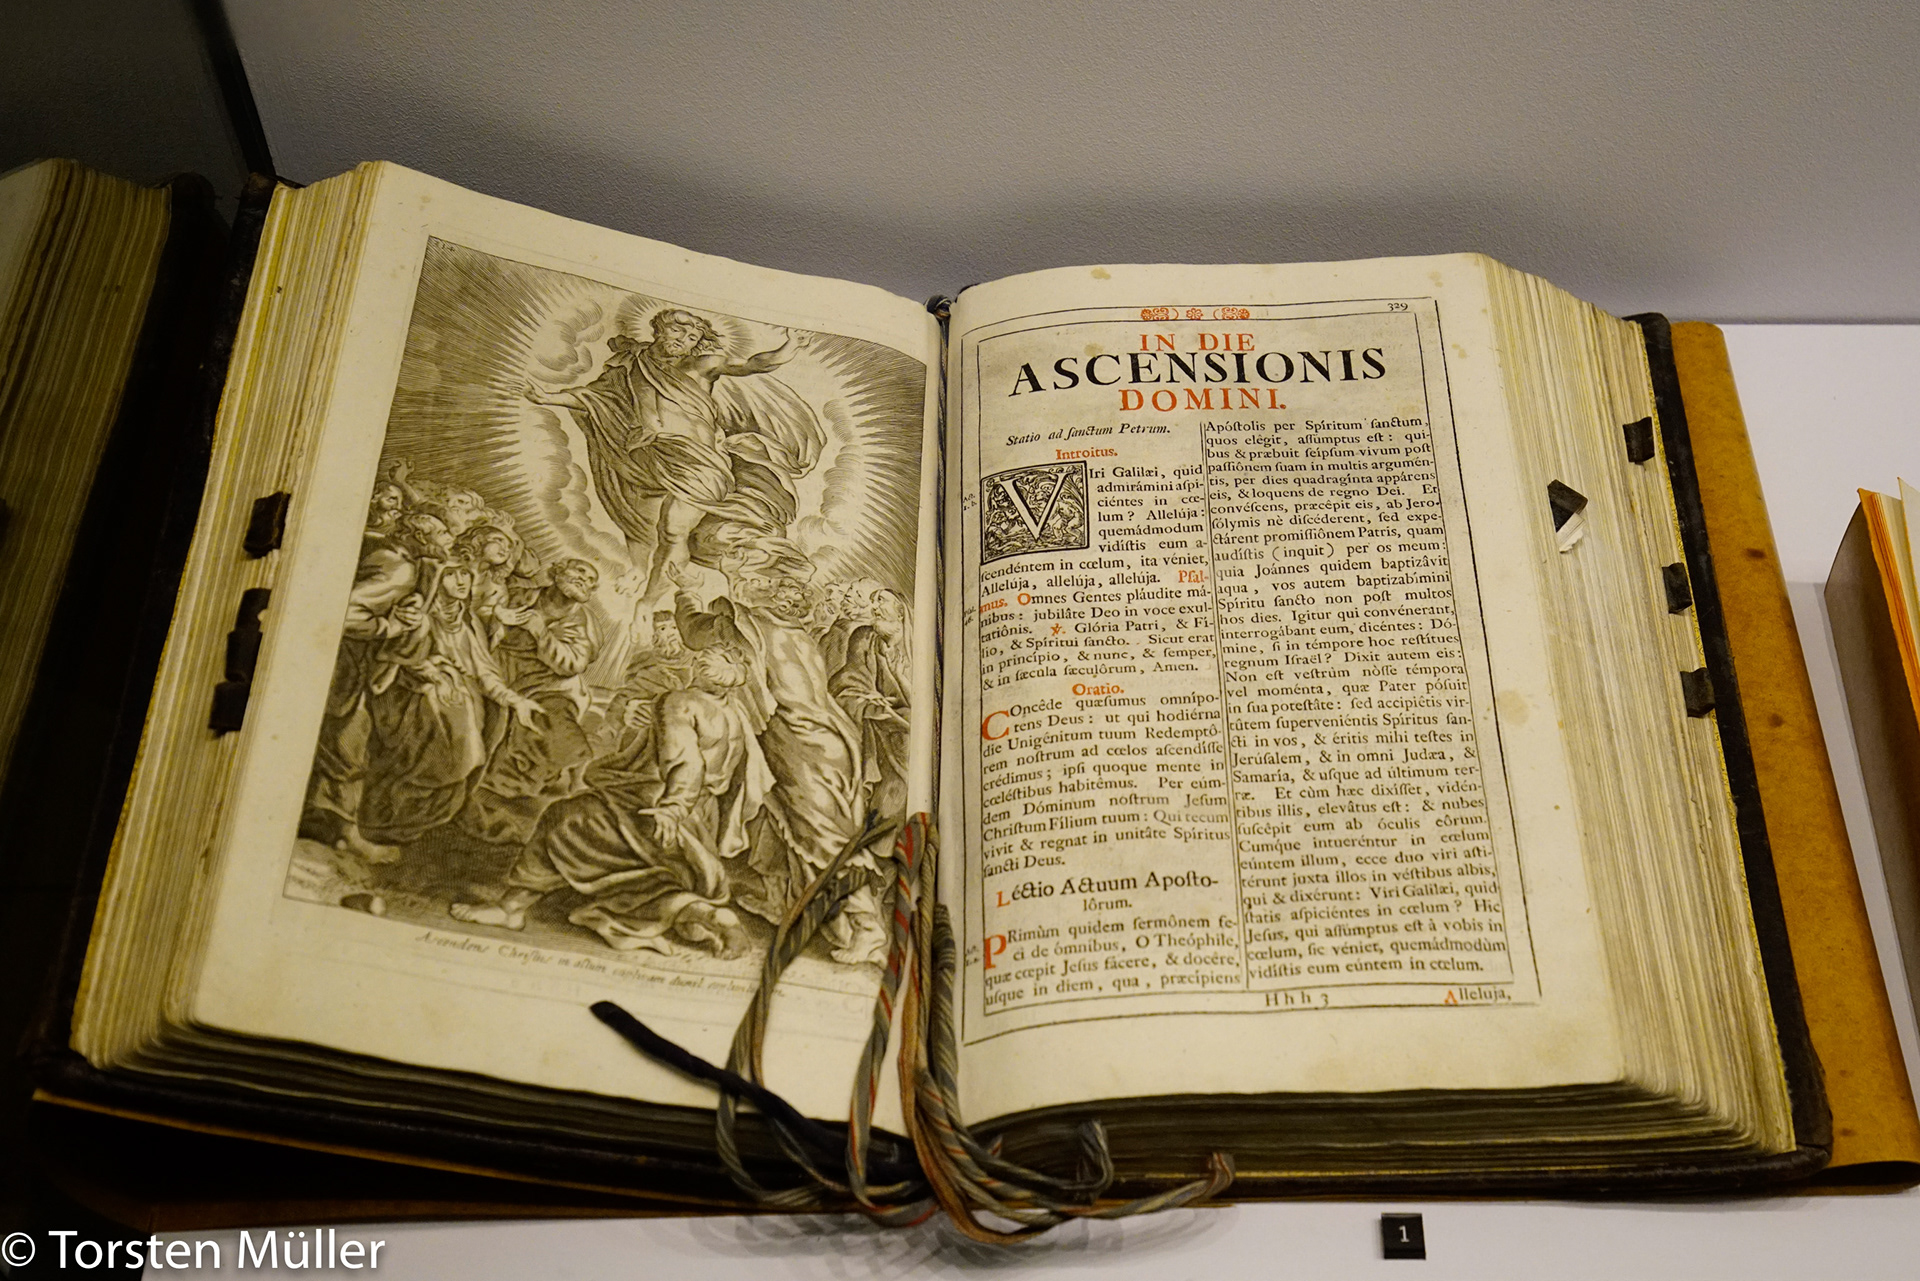 314
Ascendens Christus in altum
329
IN DIE
ASCENSIONIS
DOMINI.
Statio ad ſanctum Petrum.
Introitus.
VIri Galilæi, quid
admirámini aſpi-
ciéntes in cœ-
lum? Allelúja:
quemádmodum
vidíſtis eum a-
ſcendéntem in cœlum, ita véniet,
Allelúja, allelúja, allelúja. Pſal-
mus. Omnes Gentes pláudite má-
nibus: jubilâte Deo in voce exul-
tatiônis. ℣. Glória Patri, & Fí-
lio, & Spirítui ſancto. Sicut erat
in princípio, & nunc, & ſemper,
& in ſæcula ſæculôrum, Amen.
Oratio.
COncêde quæſumus omnípo-
tens Deus: ut qui hodiérna
die Unigénitum tuum Redemptô-
rem noſtrum ad cœlos aſcendíſſe
crédimus; ipſi quoque mente in
cœléſtibus habitêmus. Per eúm-
dem Dóminum noſtrum Jeſum
Chriſtum Fílium tuum: Qui tecum
vivit & regnat in unitâte Spíritus
ſancti Deus.
Léctio Actuum Apoſto-
lôrum.
PRimùm quidem ſermônem fe-
ci de ómnibus, O Theóphile,
quæ cœpit Jeſus fácere, & docêre,
uſque in diem, qua, præcípiens
Apóſtolis per Spíritum ſanctum,
quos elêgit, aſſúmptus eſt: qui-
bus & præbuit ſeípſum vivum poſt
paſſiônem ſuam in multis argumén-
tis, per dies quadragínta appárens
eis, & loquens de regno Dei. Et
convéſcens, præcêpit eis, ab Jero-
ſólymis nè diſcéderent, ſed expe-
ctárent promiſſiônem Patris, quam
audíſtis (inquit) per os meum:
quia Joánnes quidem baptizâvit
aqua, vos autem baptizabímini
Spíritu ſancto non poſt multos
hos dies. Igitur qui convénerant,
interrogábant eum, dicéntes: Dó-
mine, ſi in témpore hoc reſtítues
regnum Iſraël? Dixit autem eis:
Non eſt veſtrùm nôſſe témpora
vel moménta, quæ Pater póſuit
in ſua poteſtâte: ſed accipiêtis vir-
tûtem ſuperveniéntis Spíritus ſan-
cti in vos, & éritis mihi teſtes in
Jerúſalem, & in omni Judæa, &
Samaría, & uſque ad últimum ter-
ræ. Et cùm hæc dixíſſet, vidén-
tibus illis, elevâtus eſt: & nubes
ſuſcêpit eum ab óculis eôrum.
Cumque intueréntur in cœlum
eúntem illum, ecce duo viri aſti-
térunt juxta illos in véſtibus albis,
qui & dixérunt: Viri Galilæi, quid
ſtatis aſpiciéntes in cœlum? Hic
Jeſus, qui aſſúmptus eſt à vobis in
cœlum, ſic véniet, quemádmodùm
vidíſtis eum eúntem in cœlum.
Hhh 3
Alleluja,
1
© Torsten Müller